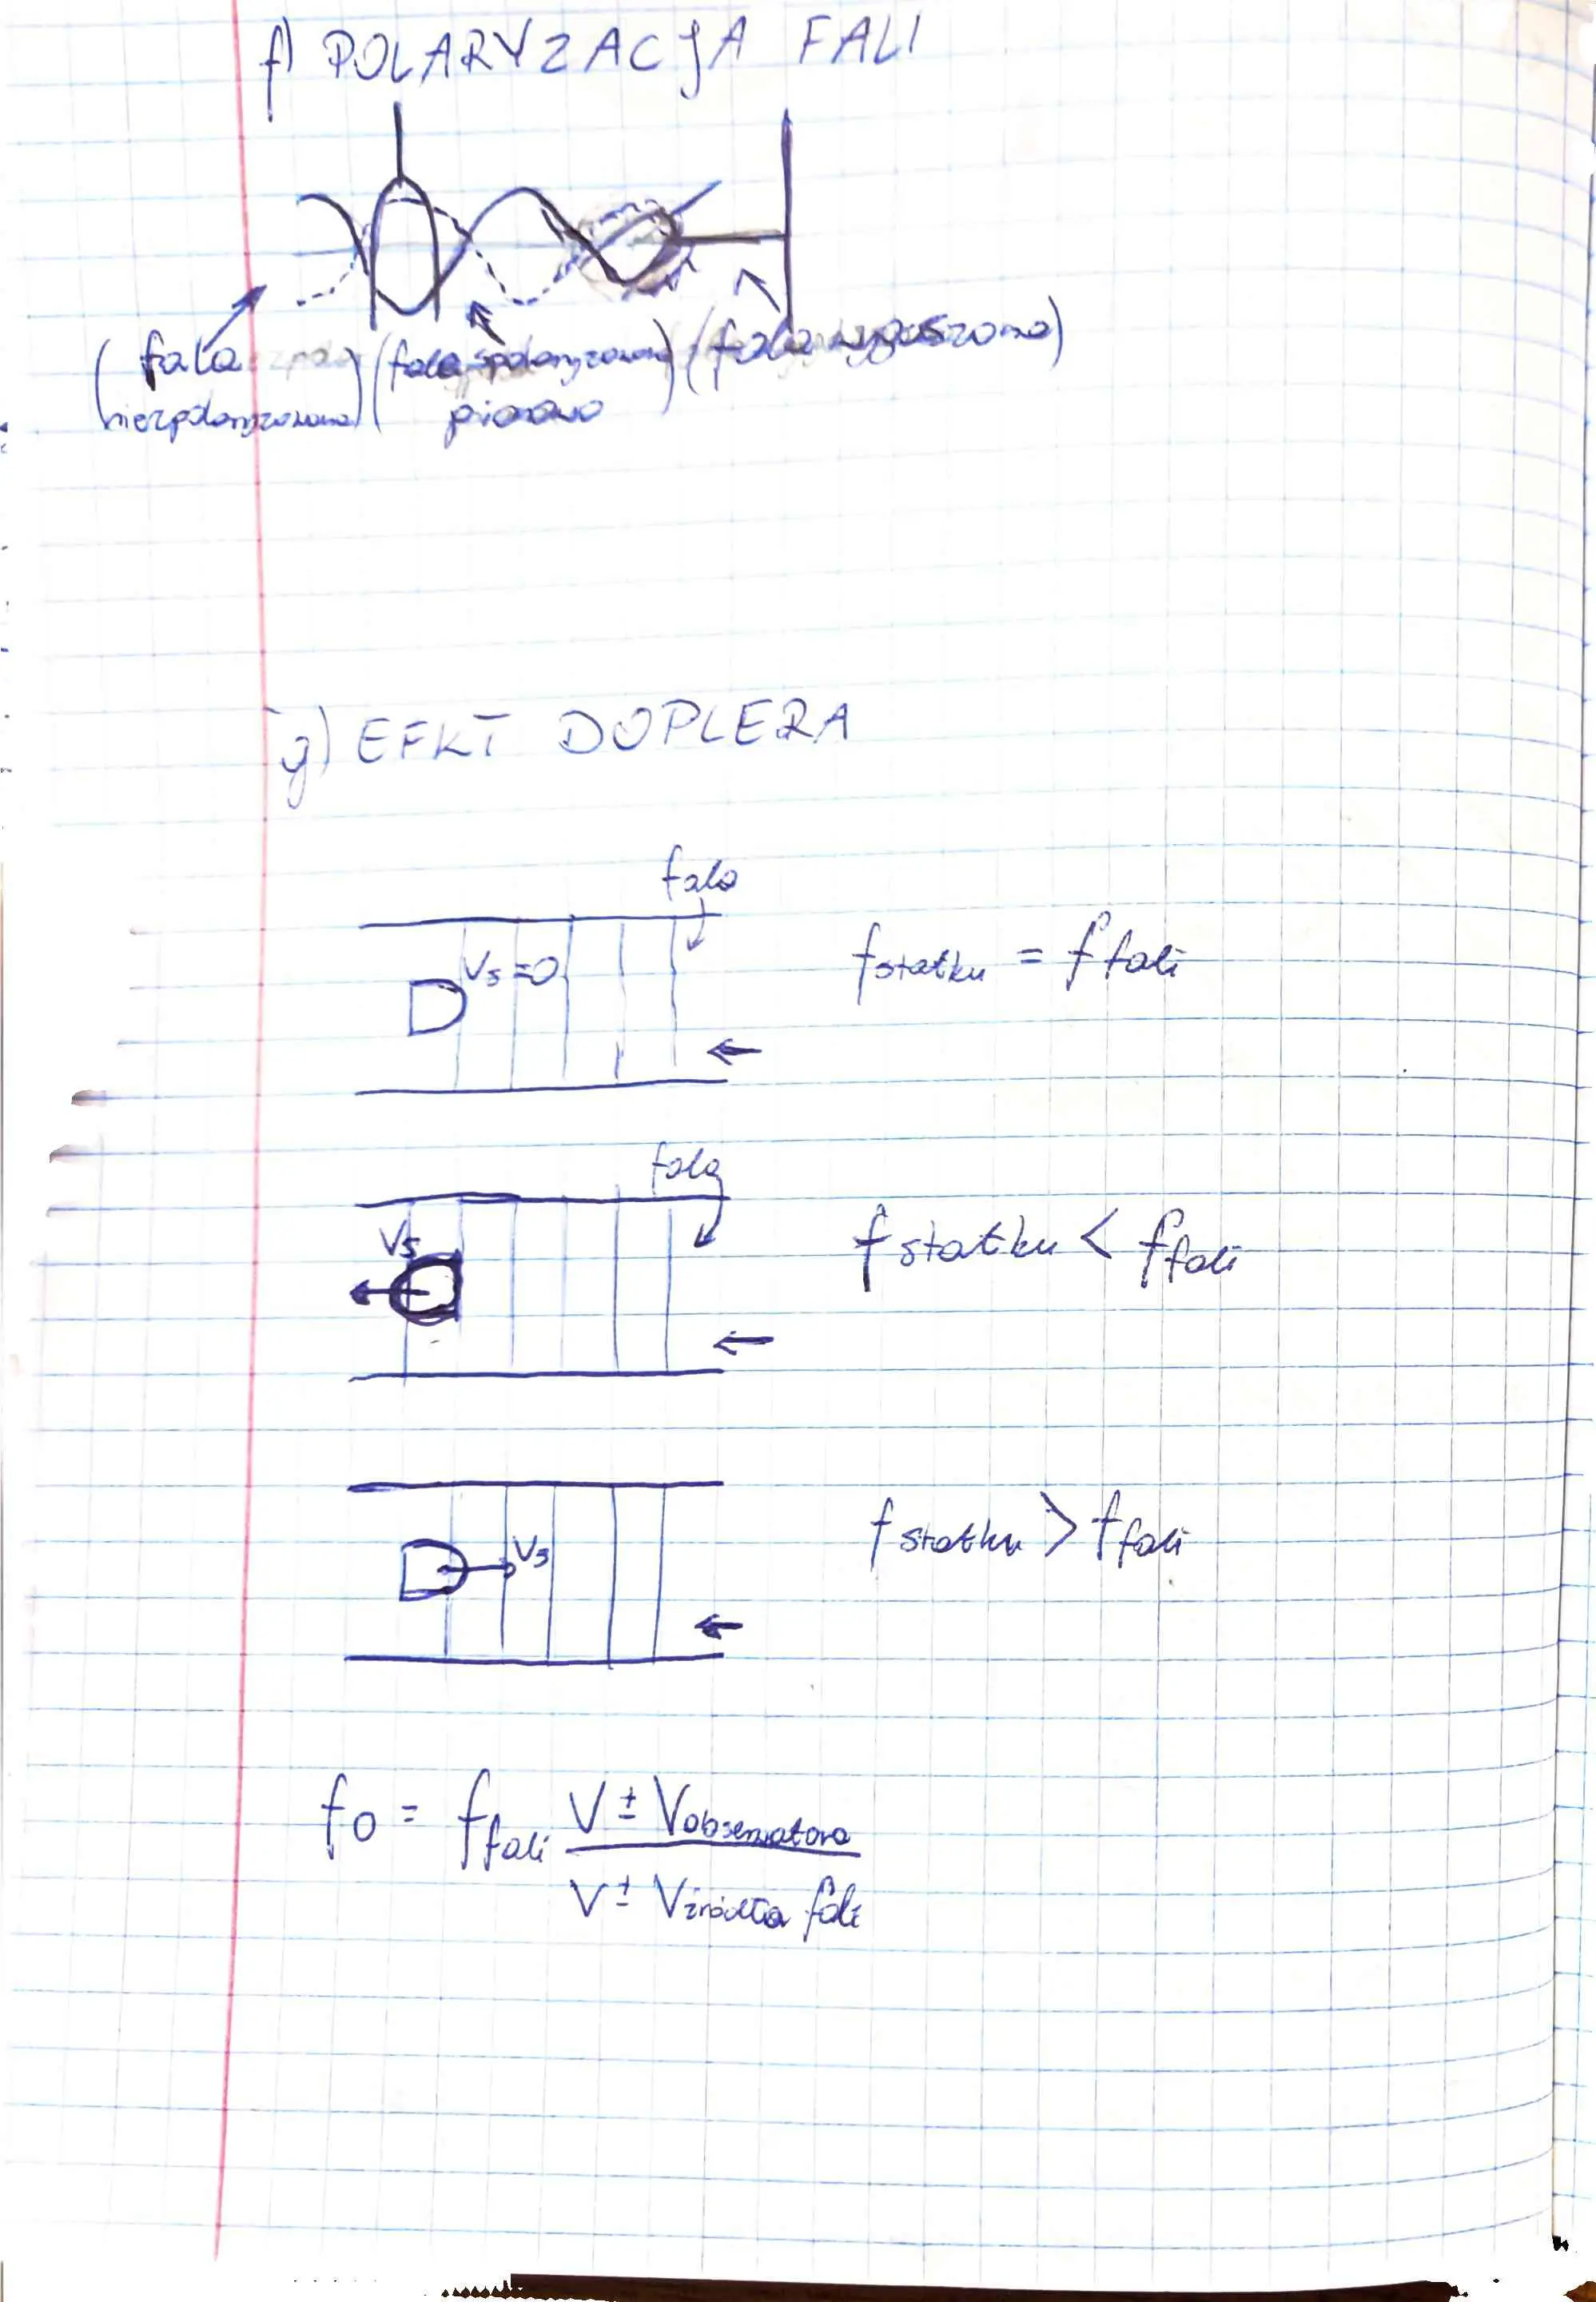 f) POLARYZACJA FALI
(fala niezpolaryzowana) (fala spolaryzowana pionowo) (fala wygaszona)
g) EFKT DOPLERA
fala
Vs=0
fstatku = ffali
fala
Vs
fstatku < ffali
Vs
fstatku > ffali
fo = ffali V ± Vobserwatora
V ± Vźródła fali